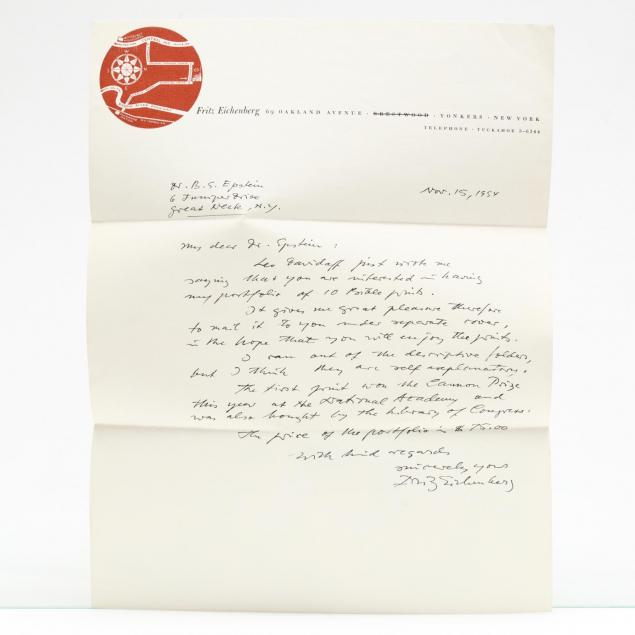 Fritz Eichenberg 69 OAKLAND AVENUE · CRESTWOOD · YONKERS · NEW YORK
TELEPHONE · TUCKAHOE 3-6394
Dr. B. S. Epstein
6 Juniper Drive
Great Neck, N.Y.
Nov. 15, 1954
My dear Dr. Epstein:
Leo Davidoff just wrote me
saying that you are interested in having
my portfolio of 10 Bible prints.
It gives me great pleasure therefore
to mail it to you under separate cover,
in the hope that you will enjoy the prints.
I ran out of the descriptive folders,
but I think they are self explanatory.
The first print won the Cannon Prize
this year at the National Academy and
was also bought by the Library of Congress.
The price of the portfolio is
with kind regards
sincerely yours
Fritz Eichenberg